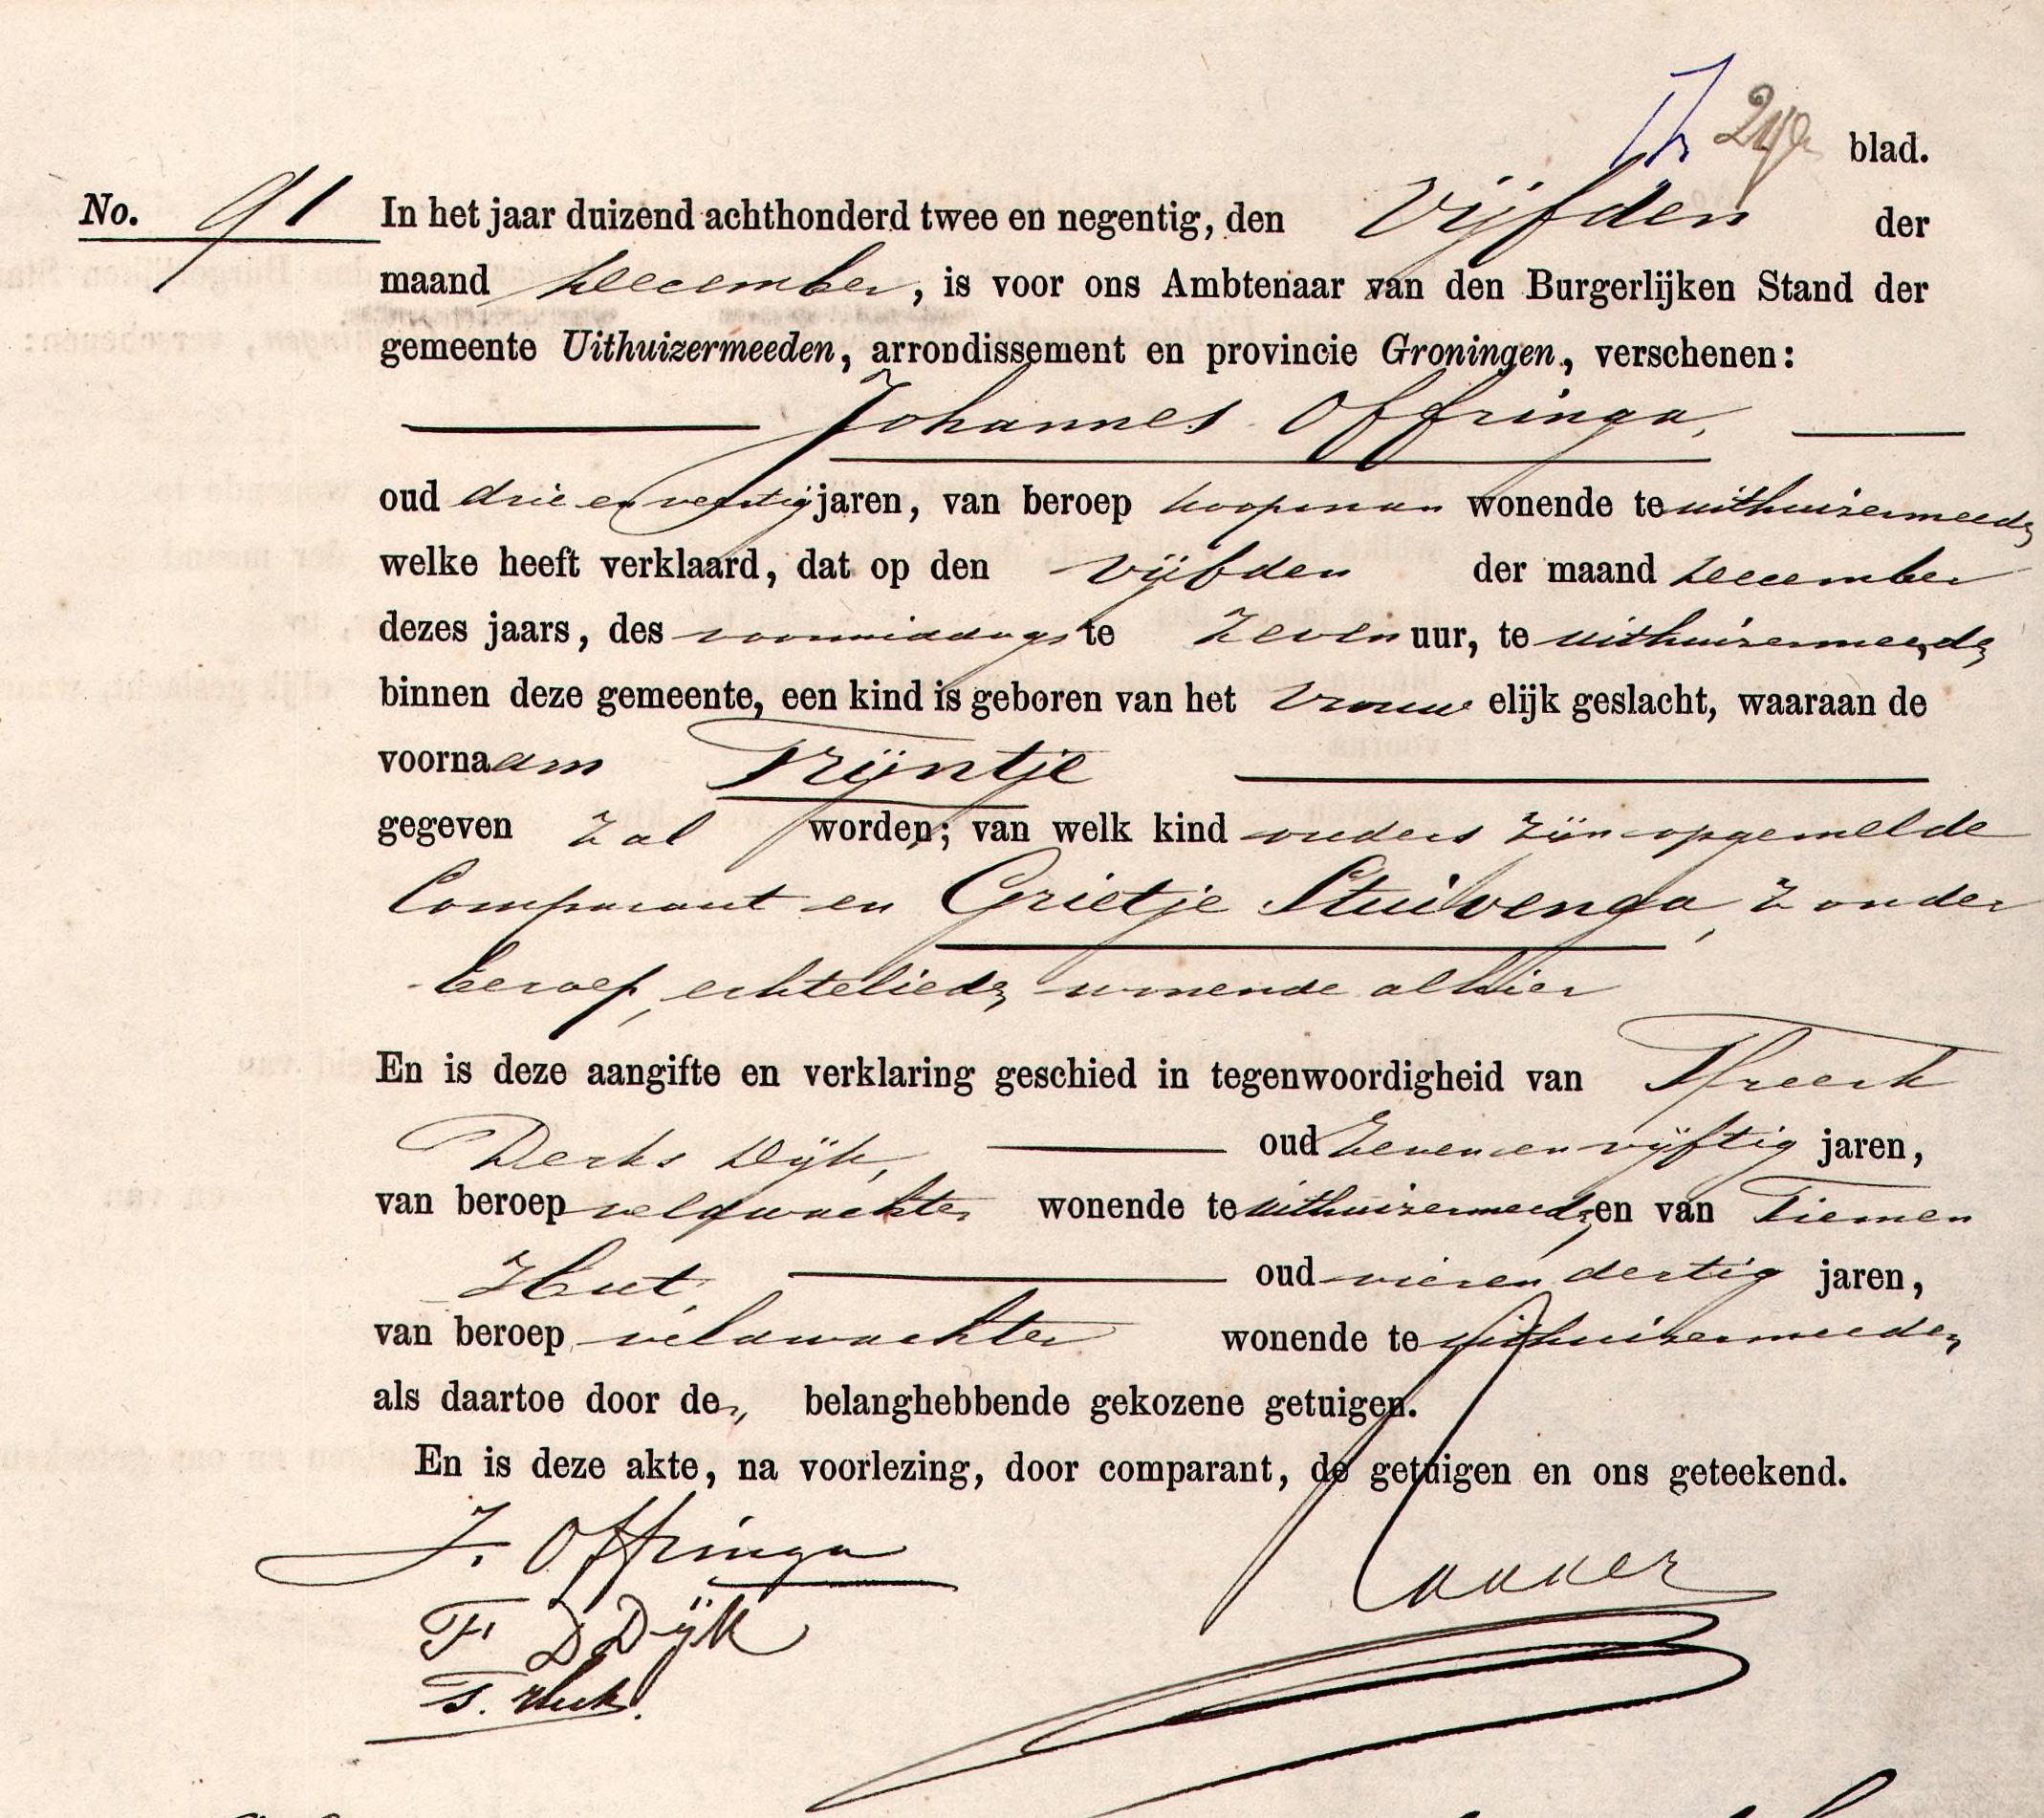 blad.
No. 91 In het jaar duizend achthonderd twee en negentig, den Vijfden der
maand December, is voor ons Ambtenaar van den Burgerlijken Stand der
gemeente Uithuizermeeden, arrondissement en provincie Groningen, verschenen:
Johannes Offringa,
oud drie en veertig jaren, van beroep koopman wonende te uithuizermeeden
welke heeft verklaard, dat op den vijfden der maand december
dezes jaars, des voormiddags te zeven uur, te uithuizermeeden
binnen deze gemeente, een kind is geboren van het vrouwelijk geslacht, waaraan de
voornaam Trijntje
gegeven zal worden; van welk kind ouders zijn opgemelde
Comparant en Grietje Stuivenga, zonder
beroep, echtelieden wonende alhier
En is deze aangifte en verklaring geschied in tegenwoordigheid van Freerk
Derks Dijk, oud zevenenvijftig jaren,
van beroep veldwachter wonende te uithuizermeeden en van Tiemen
Hut, oud vierendertig jaren,
van beroep veldwachter wonende te uithuizermeeden
als daartoe door de belanghebbende gekozene getuigen.
En is deze akte, na voorlezing, door comparant, de getuigen en ons geteekend.
J. Offringa
F D Dijk
T. Hut.